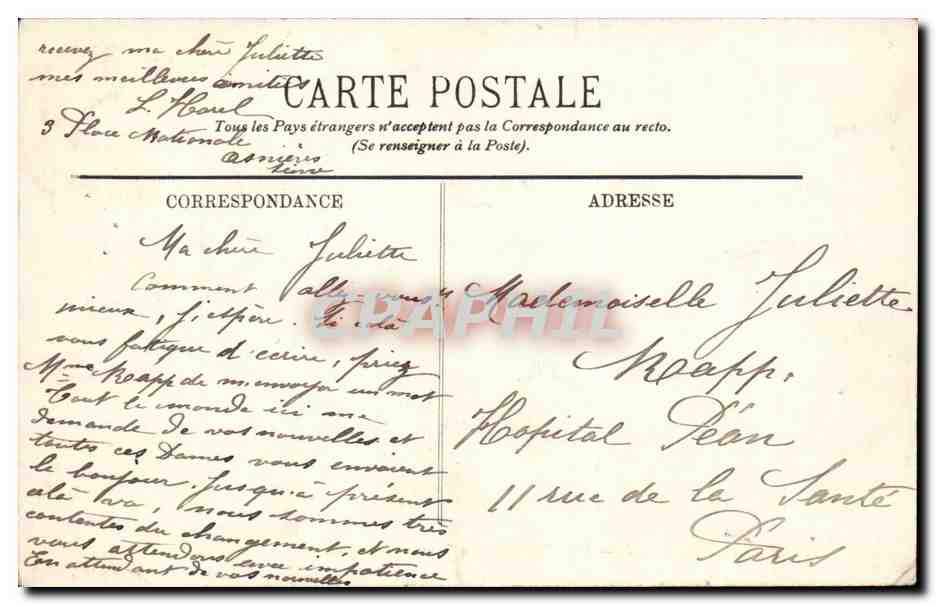 recevez ma chère Juliette
mes meilleures amitiés
L. Horel
3 Place Nationale
Asnières
Seine
CARTE POSTALE
Tous les Pays étrangers n'acceptent pas la Correspondance au recto.
(Se renseigner à la Poste).
CORRESPONDANCE
Ma chère Juliette
Comment allez-vous,
mieux, j'espère. Si celà
vous fatigue d'écrire, priez
Mme Rapp de m'envoyer un mot
Tout le monde ici me
demande de vos nouvelles et
toutes ces Dames vous envoient
le bonjour. Jusqu'à présent
celà va, nous sommes très
contentes du changement, et nous
vous attendons avec impatience
En attendant de vos nouvelles
ADRESSE
Mademoiselle Juliette
Rapp.
Hopital Péan
11 rue de la Santé
Paris
CPAPHIL